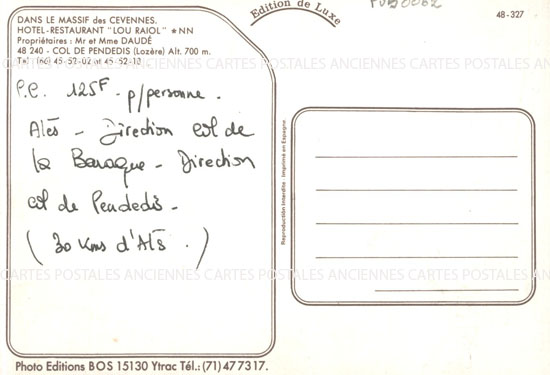 Edition de Luxe
PUB0062
48-327
DANS LE MASSIF des CEVENNES.
HOTEL-RESTAURANT "LOU RAIOL" *NN
Propriétaires : Mr et Mme DAUDÉ
48 240 - COL DE PENDEDIS (Lozère) Alt. 700 m.
Tel : (66) 45-52-02 et 45-52-10
P.C. 125F - p/personne.
Alès - Direction col de
la Baraque - Direction
col de Pendedis -
(30 Kms d'Alès.)
Reproduction Interdite : Imprimé en Espagne
CARTES POSTALES ANCIENNES CARTES POSTALES ANCIENNES CARTES POSTALES
Photo Editions BOS 15130 Ytrac Tél.: (71) 47 73 17.